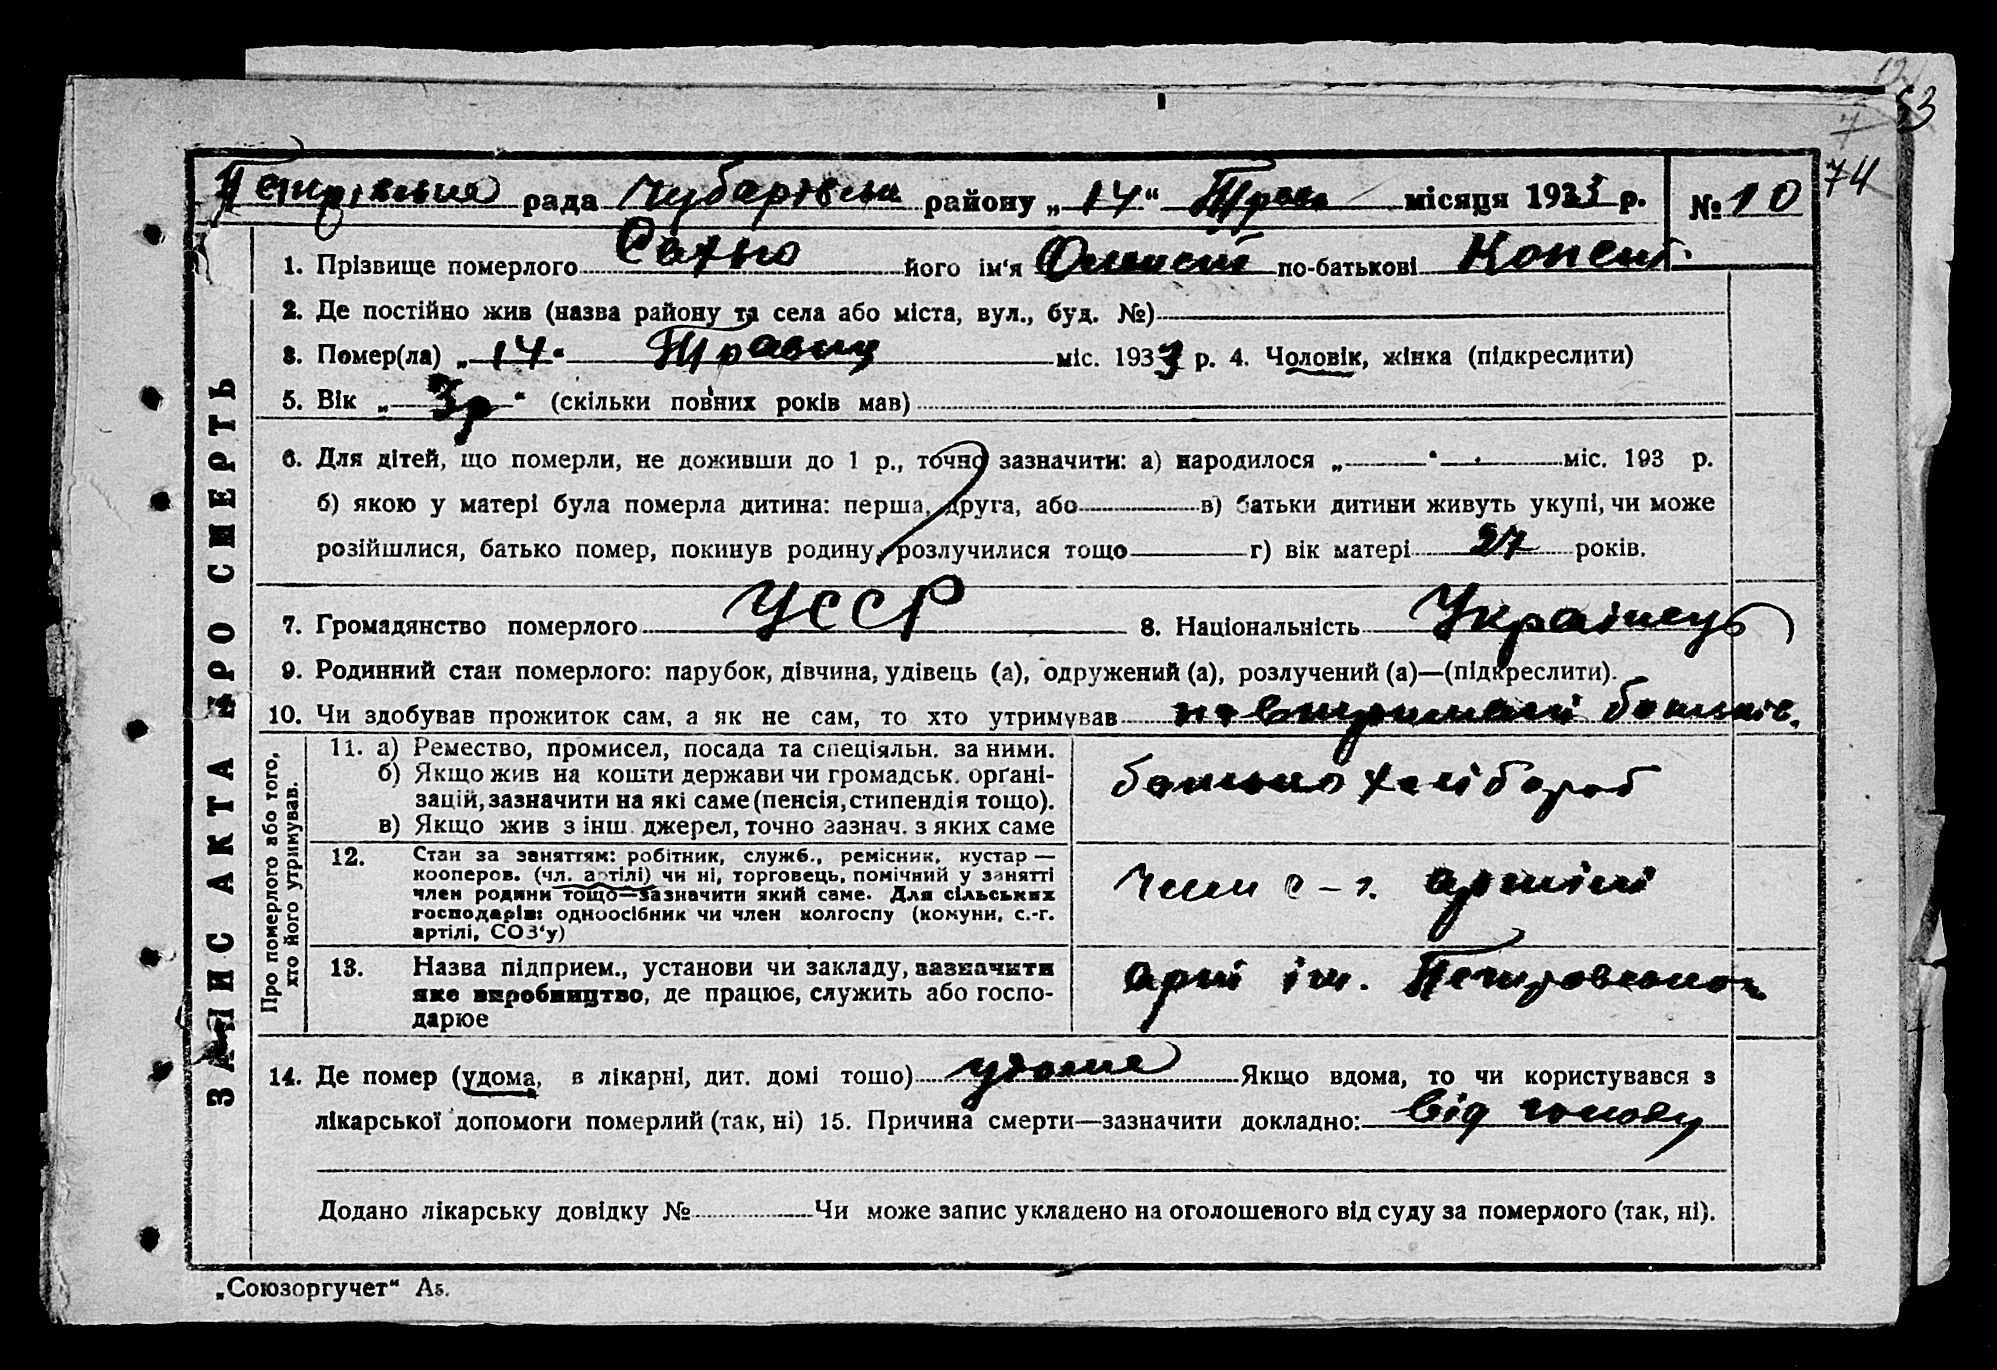 12
53
7
74
Петрівська рада Чубарівськ району „14“ Трав місяця 1933 р. № 10
1. Прізвище померлого його ім‘я Олексій по-батькові
2. Де постійно жив (назва району та села або міста, вул., буд. №)
3. Помер(ла) „14“ Травня міс. 1933 р. 4. Чоловік, жінка (підкреслити)
5. Вік „3 р“ (скільки повних років мав)
6. Для дітей, що померли, не доживши до 1 р., точно зазначити: а) народилося „ “ міс. 193 р.
б) якою у матері була померла дитина: перша, друга, або в) батьки дитини живуть укупі, чи може
розійшлися, батько помер, покинув родину, розлучилися тощо г) вік матері 27 років.
7. Громадянство померлого УССР 8. Національність Українець
9. Родинний стан померлого: парубок, дівчина, удівець (а), одружений (а), розлучений (а)—(підкреслити).
10. Чи здобував прожиток сам, а як не сам, то хто утримував на втриманні батьків.
Про померлого або того,
хто його утримував.
11. а) Ремество, промисел, посада та спеціяльн. за ними.
б) Якщо жив на кошти держави чи громадськ. орґані-
зацій, зазначити на які саме (пенсія, стипендія тощо).
в) Якщо жив з інш. джерел, точно зазнач. з яких саме
батько хлібороб
12. Стан за заняттям: робітник, служб., ремісник, кустар —
кооперов. (чл. артілі) чи ні, торговець, помічний у занятті
член родини тощо—зазначити який саме. Для сільських
господарів: одноосібник чи член колгоспу (комуни, с.-г.
артілі, СОЗ‘у)
член с-г. артілі
13. Назва підприем., установи чи закладу, зазначити
яке виробництво, де працює, служить або госпо-
дарює
арт ім. Петровського
14. Де помер (удома, в лікарні, дит. домі тощо) удома Якщо вдома, то чи користувався з
лікарської допомоги померлий (так, ні) 15. Причина смерти—зазначити докладно: від голоду
Додано лікарську довідку № Чи може запис укладено на оголошеного від суду за померлого (так, ні).
ЗАПИС АКТА ПРО СМЕРТЬ
„Союзоргучет“ А5.